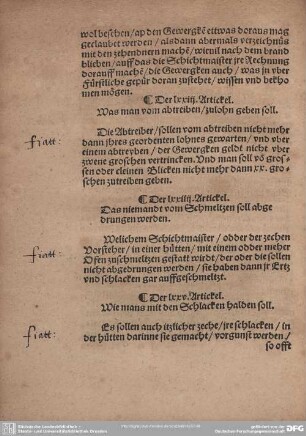 wol besehen/ap den Gewergkẽ eitwas doraus mag
geclaubet werden/alsdann abermals verzeichnüs
mit den zehendnern machẽ/wieuil nach dem brand
blichen/auff das die Schichtmaister jre Rechnung
dorauff machẽ/die Gewergken auch/was jn vber
Fürstliche gepür doran zustehet/wissen vnd bekho
men mögen.
¶ Der lxxiij. Artickel.
Was man vom abtreiben/zulohn geben soll.
Die Abtreiber/sollen vom abtreiben nicht mehr
dann jhres geordenten lohnes gewarten/vnd vber
einem abtreyben/der Gewergken geldt nicht vber
zwene groschen vertrincken. Vnd man soll võ gros-
sen oder cleinen Blicken nicht mehr dann xx. gro-
schen zutreiben geben.
fiatt:
¶ Der lxxiiij. Artickel.
Das niemandt vom Schmeltzen soll abge
drungen werden.
Welichem Schichtmaister/odder der zechen
Vorsteher/in einer hütten/mit einem odder meher
Ofen zuschmeltzen gestatt wirdt/der oder die sollen
nicht abgedrungen werden/sie haben dann jr Ertz
vnd schlacken gar auffgeschmeltzt.
fiatt:
¶ Der lxxv. Artickel.
Wie mans mit den Schlacken halden soll.
Es sollen auch itzlicher zeche/jre schlacken/in
der hütten darinne sie gemacht/vorgunst werden/
so offt
fiatt: